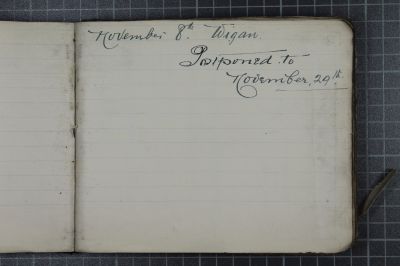 November 8th. Wigan.
Postponed to
November, 29th.